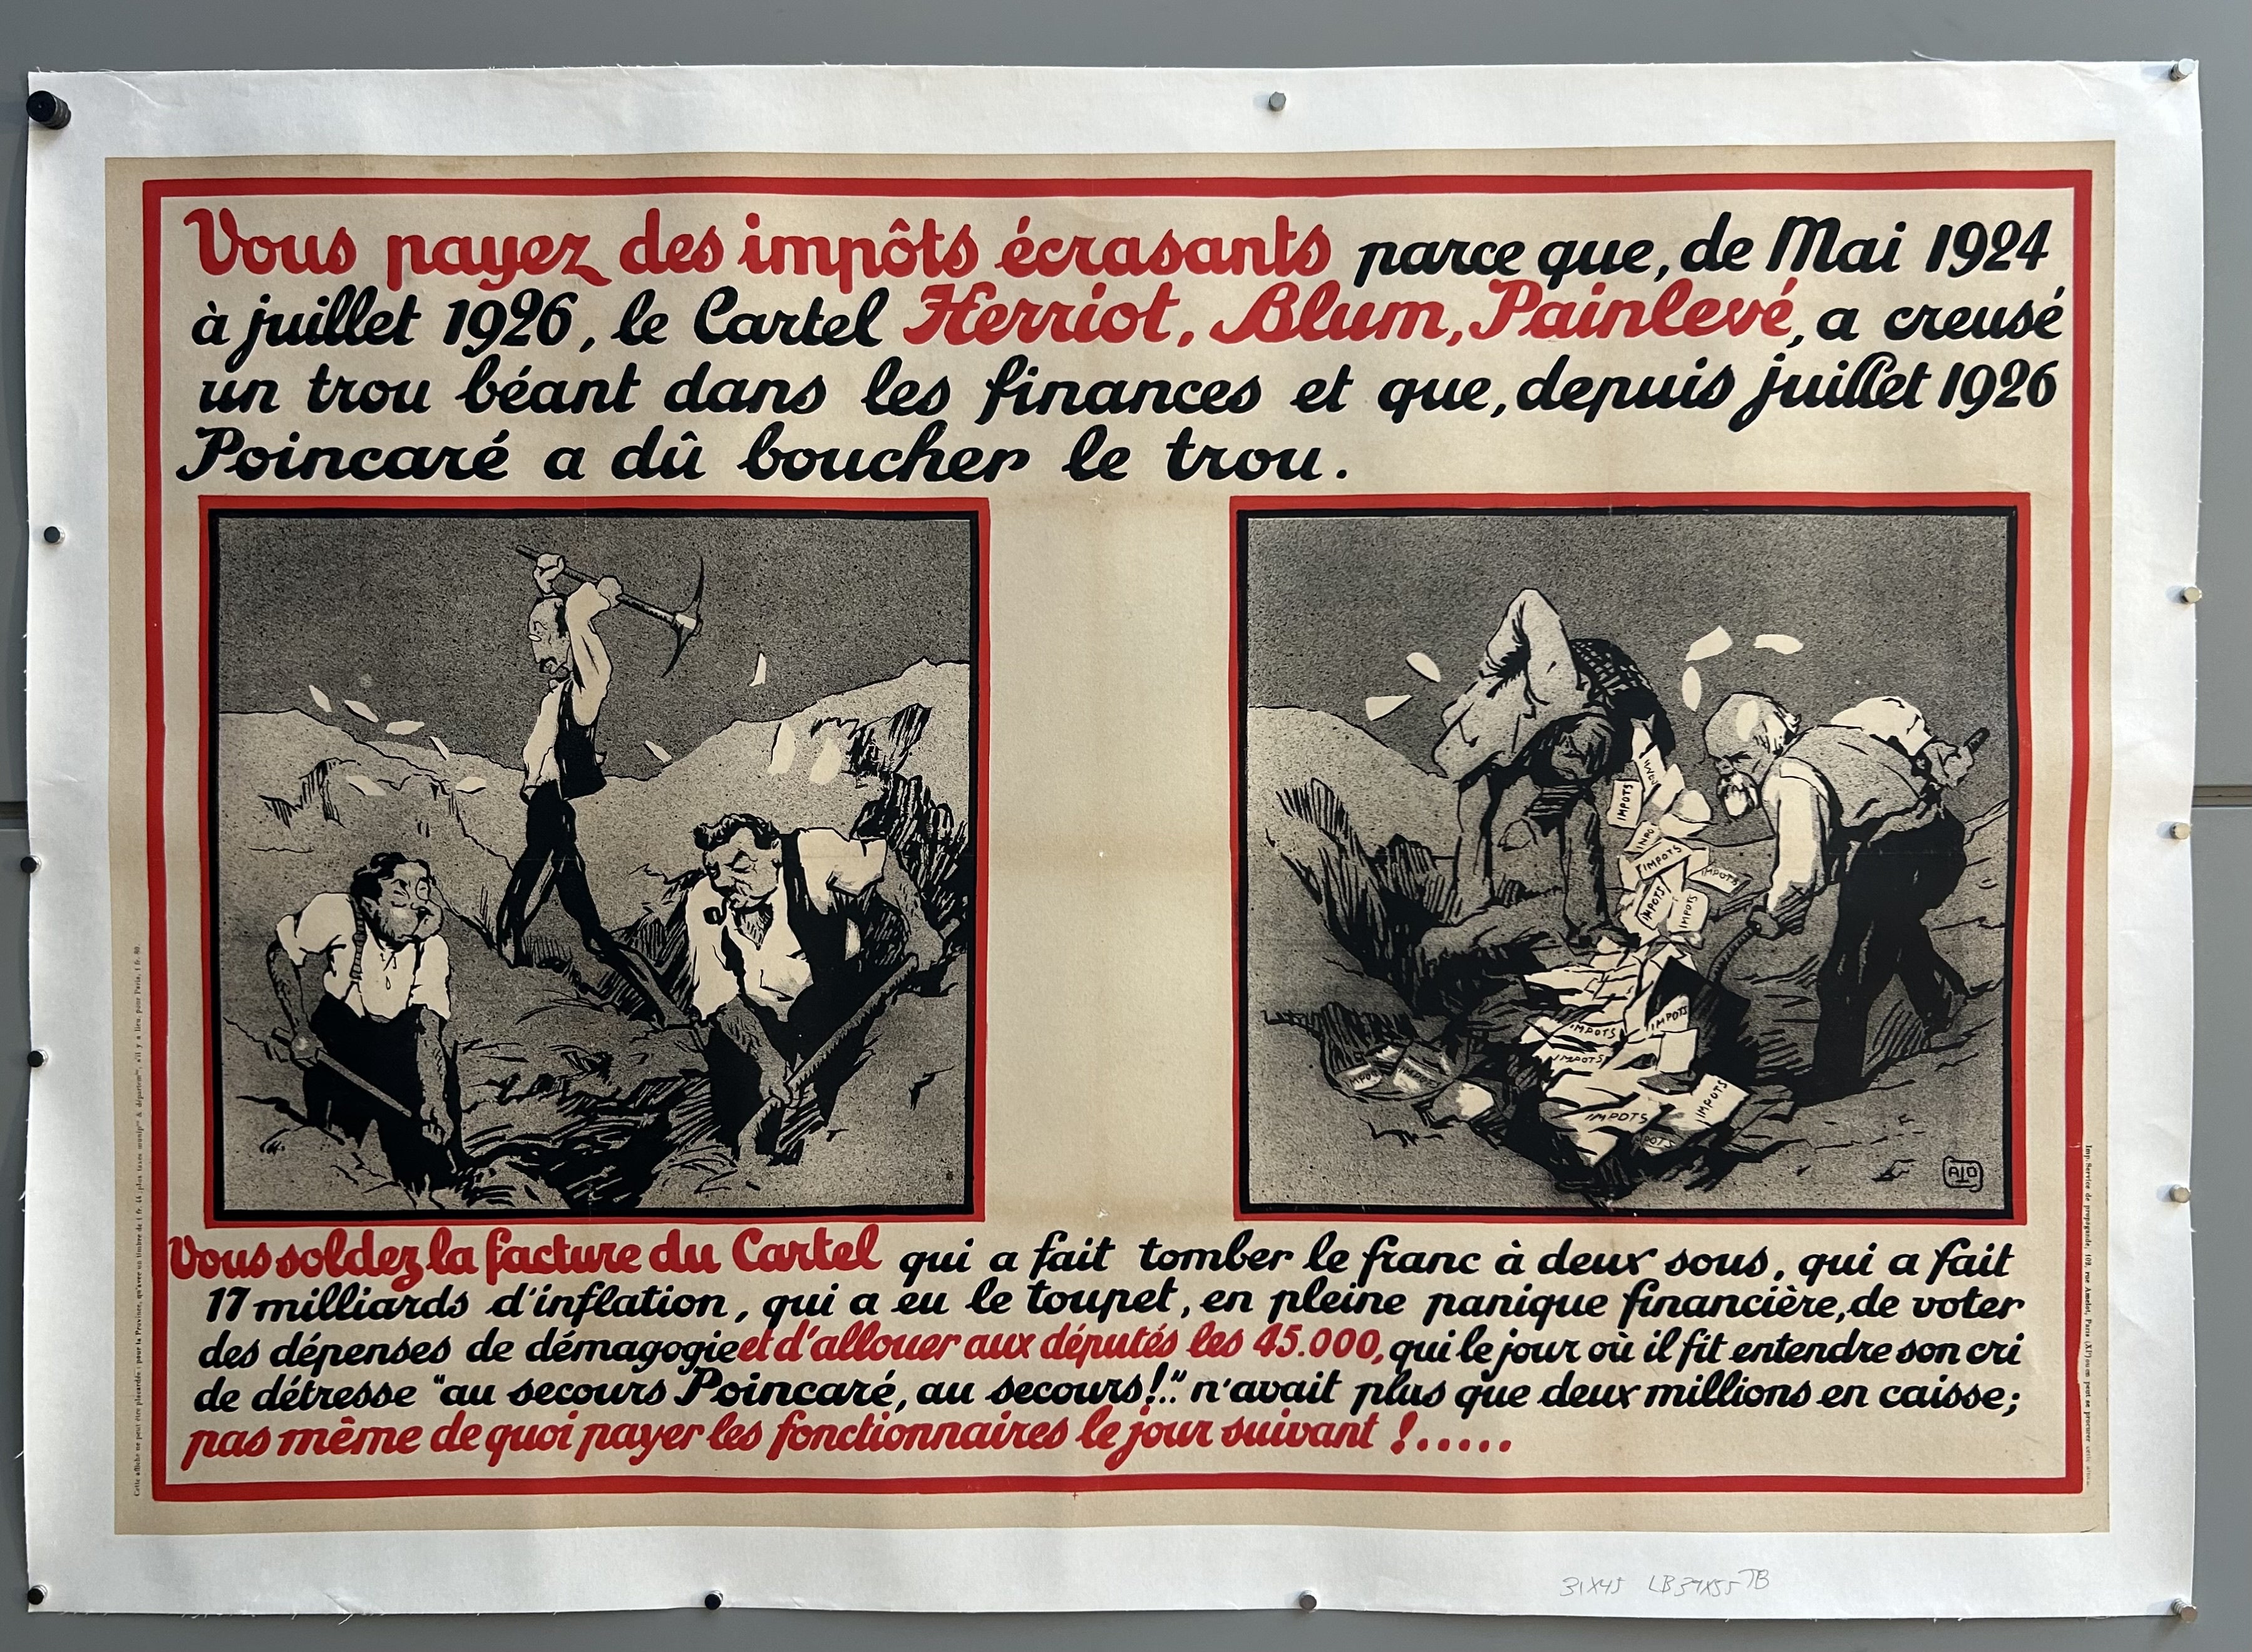 Vous payez des impôts écrasants parce que, de Mai 1924
à juillet 1926, le Cartel Herriot, Blum, Painlevé, a creusé
un trou béant dans les finances et que, depuis juillet 1926
Poincaré a dû boucher le trou.
IMPOTS
IMPOTS
IMPOTS
IMPOTS
IMPOTS
IMPOTS
IMPOTS
IMPOTS
IMPOTS
IMPOTS
AID
Vous soldez la facture du Cartel qui a fait tomber le franc à deux sous, qui a fait
17 milliards d'inflation, qui a eu le toupet, en pleine panique financière, de voter
des dépenses de démagogie et d'allouer aux députés les 45.000, qui le jour où il fit entendre son cri
de détresse "au secours Poincaré, au secours!.." n'avait plus que deux millions en caisse;
pas même de quoi payer les fonctionnaires le jour suivant !.....
Cette affiche ne peut être placardée : pour la Province, qu'avec un timbre de 1 fr. 44, plus taxes
Imp. Service de propagande, 102, rue Amelot, Paris (XIe) où on peut se procurer cette
31X45 LB 39X55 TB